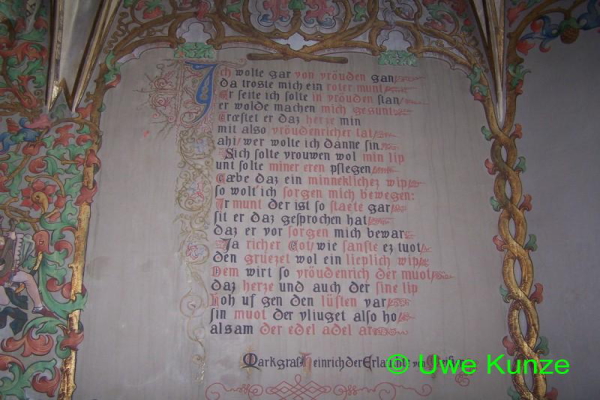 Ich wolte gar von vröuden gan/
da troste mich ein roter munt
Er seite ich solte in vröuden stan/
er wolde machen mich gesunt
Trœstet er daz herze min
mit also vröudenricher tat/
ahi/ wer wolte ich danne sin
Sich solte vrouwen wol min lip
unt solte miner eren pflegen
Gæbe daz ein minneklichez wip/
so wolt ich sorgen mich bewegen:
Ir munt der ist so staete gar/
sit er daz gesprochen hat
daz er vor sorgen mich bewar
Ja richer Got/ wie sanfte ez tuot
den gruezet wol ein lieplich wip/
Dem wirt so vröudenrich der muot
daz herze und auch der sine lip
Hoh uf gen den lüften var
sin muot der vliuget also ho
alsam der edel adel ar
Markgraf Heinrich der Erlaucht von
© Uwe Kunze